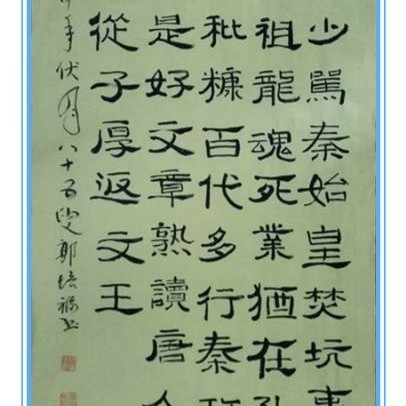 少駡秦始皇焚坑事
祖龍魂死業猶在孔
秕糠百代多行秦政
是好文章熟讀唐人
從子厚返文王
年伏月八十五叟鄭培